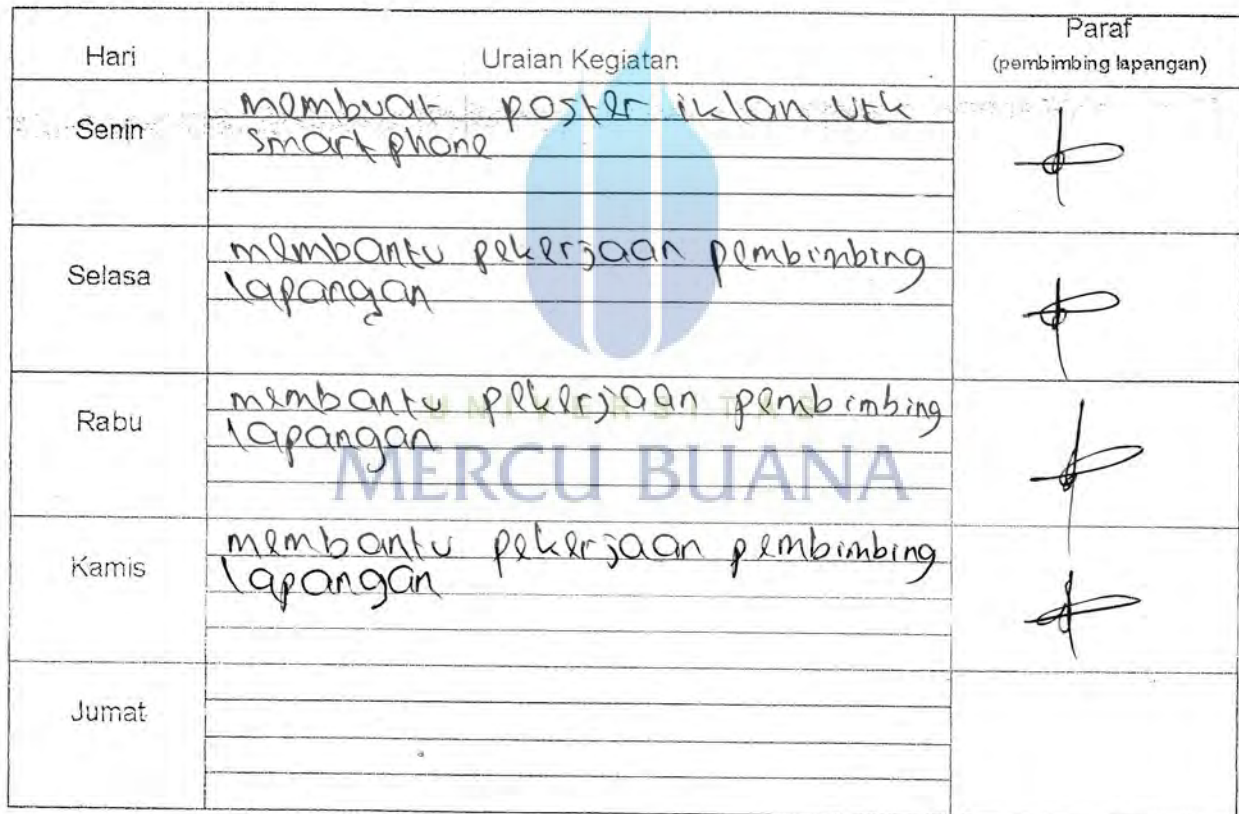 Hari Uraian Kegiatan Paraf
(pembimbing lapangan)
Senin
membuat poster iklan utk
smartphone
Selasa
membantu pekerjaan pembimbing
lapangan
Rabu
membantu pekerjaan pembimbing
lapangan
UNIVERSITAS
MERCU BUANA
Kamis
membantu pekerjaan pembimbing
lapangan
Jumat